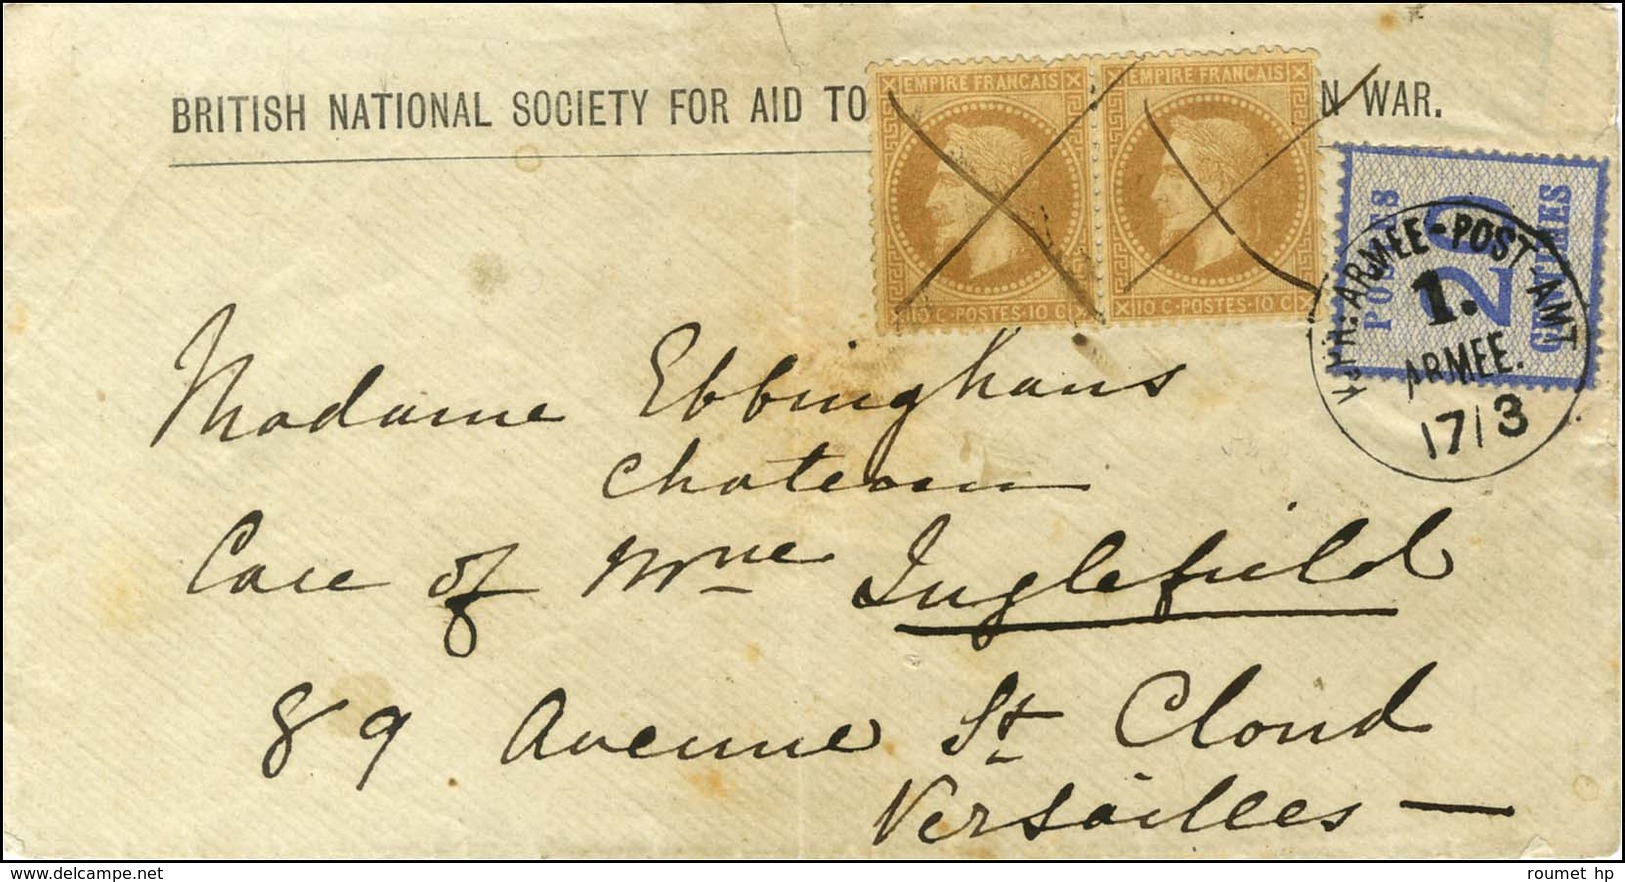 BRITISH NATIONAL SOCIETY FOR AID TO N WAR.
EMPIRE FRANCAIS EMPIRE FRANCAIS
10 C·POSTES·10 C 10 C·POSTES·10 C
POSTES 20 CENTIMES
K.PR. ARMEE-POST-AMT
1.
ARMEE.
17/3
Madame Ebbinghaus
Chateau
Care of Mme Inglefield
89 Avenue St Cloud
Versailles —
roumet hp